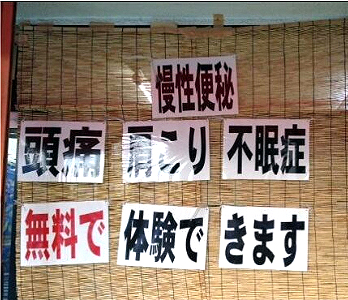 慢性便秘
頭痛 肩こり 不眠症
無料で 体験で きます